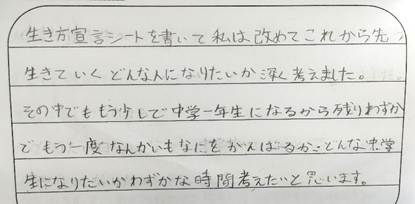 生き方宣言シートを書いて私は改めてこれから先、
生きていくどんな人になりたいか深く考えました。
その中でももう少しで中学一年生になるから残りわずか
でもう一度なんかいもなにをがんばるか、どんな中学
生になりたいかわずかな時間考えたいと思います。